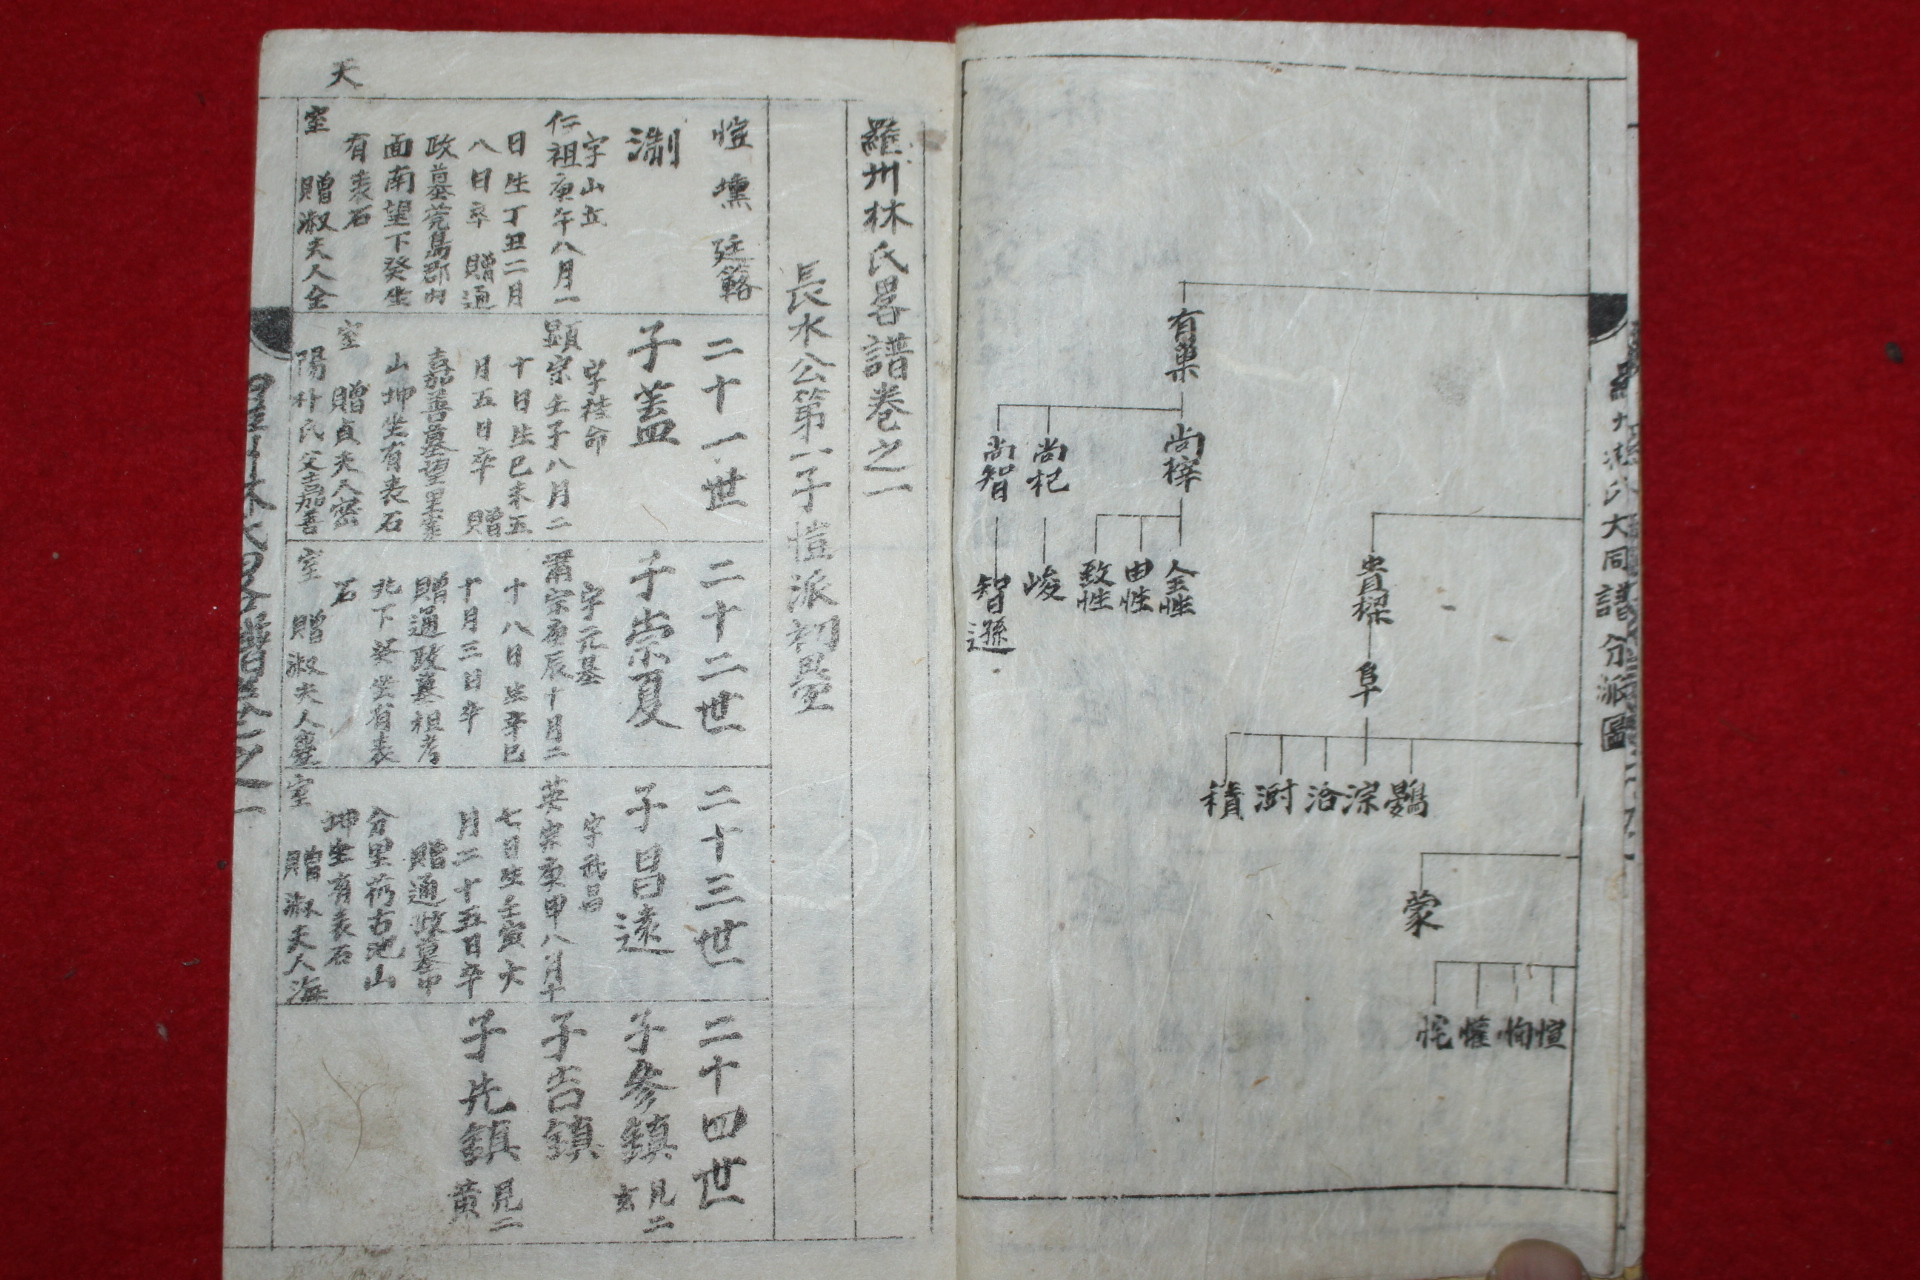 有巢
尚梓
尚杞
尚智
全性
由性
致性
峻
智遜
貴樑
阜
淙
洽
澍
積
蒙
愃
恂
懽
恠
林氏大同譜分派圖
羅州林氏畧譜卷之一
長水公第一子愷派初疊
愷 壎 廷簵
二十一世
二十二世
二十三世
二十四世
天
淛
字山立
仁祖庚午八月一
日生丁丑二月
八日卒 贈通
政墓莞島郡內
面南望下癸坐
有表石
室 贈淑夫人金
子蓋
字桂命
顯宗壬子八月二
十日生己未五
月五日卒 贈
嘉善墓望里案
山坤坐有表石
室 贈貞夫人密
陽朴氏父嘉善
子崇夏
字元基
肅宗庚辰十月二
十八日生辛巳
十月三日卒
贈通政墓祖考
北下癸坐有表
石
室 贈淑夫人慶
子昌遠
字武昌
英宗庚申八月十
七日生壬寅六
月二十五日卒
贈通政墓中
分里芿古池山
坤坐有表石
室 贈淑夫人海
子參鎮 見二玄
子吉鎮
子先鎮 見二黃